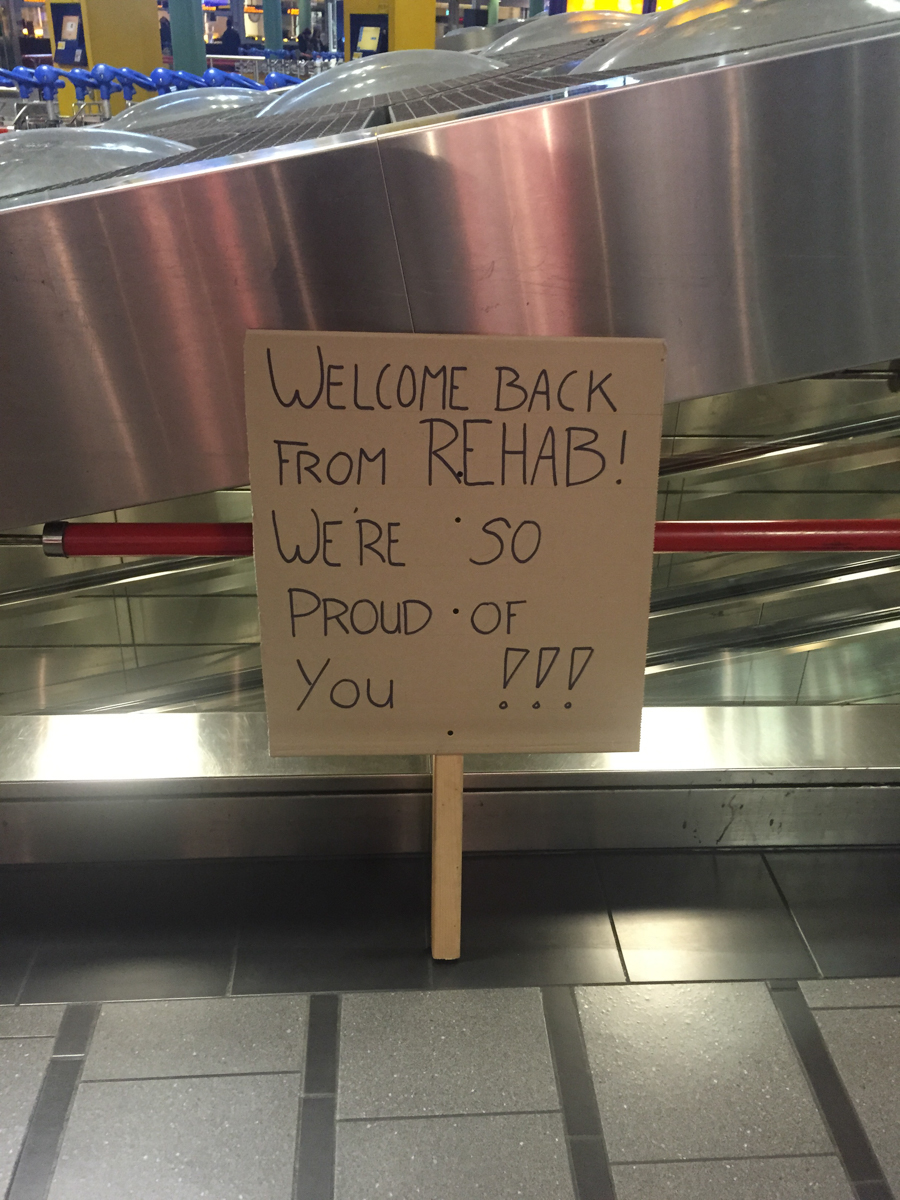 WELCOME BACK
FROM REHAB!
WE'RE SO
PROUD OF
YOU !!!